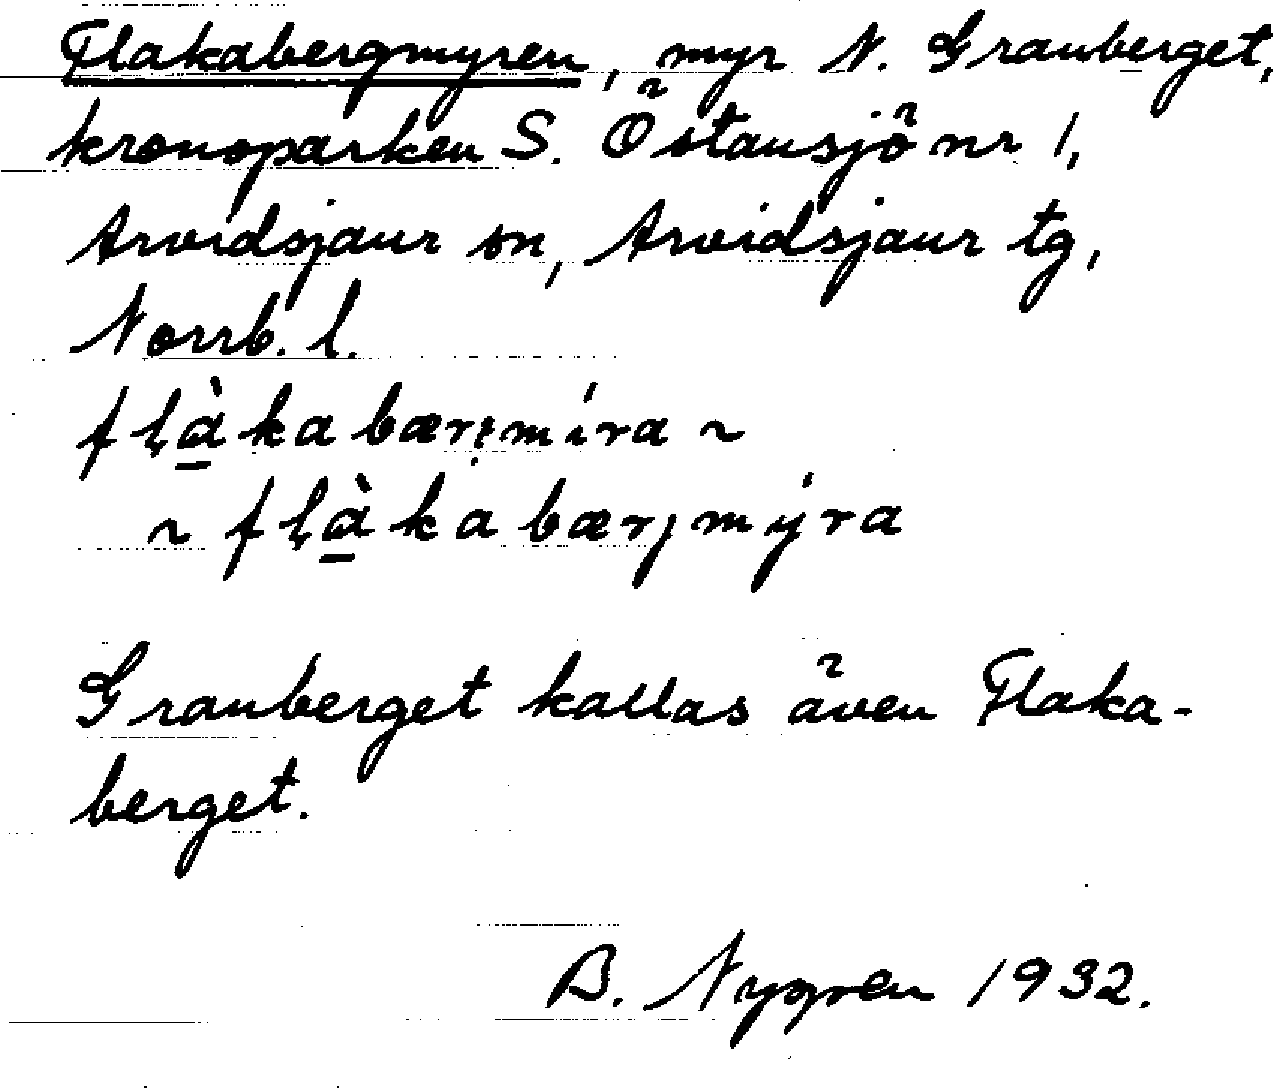 Flakabergmyren, myr N. Granberget,
kronoparken S. Östansjö nr 1,
Arvidsjaur sn, Arvidsjaur tg,
Norrb. l.
~
~
Granberget kallas även Flaka-
berget.
B. Nygren 1932.